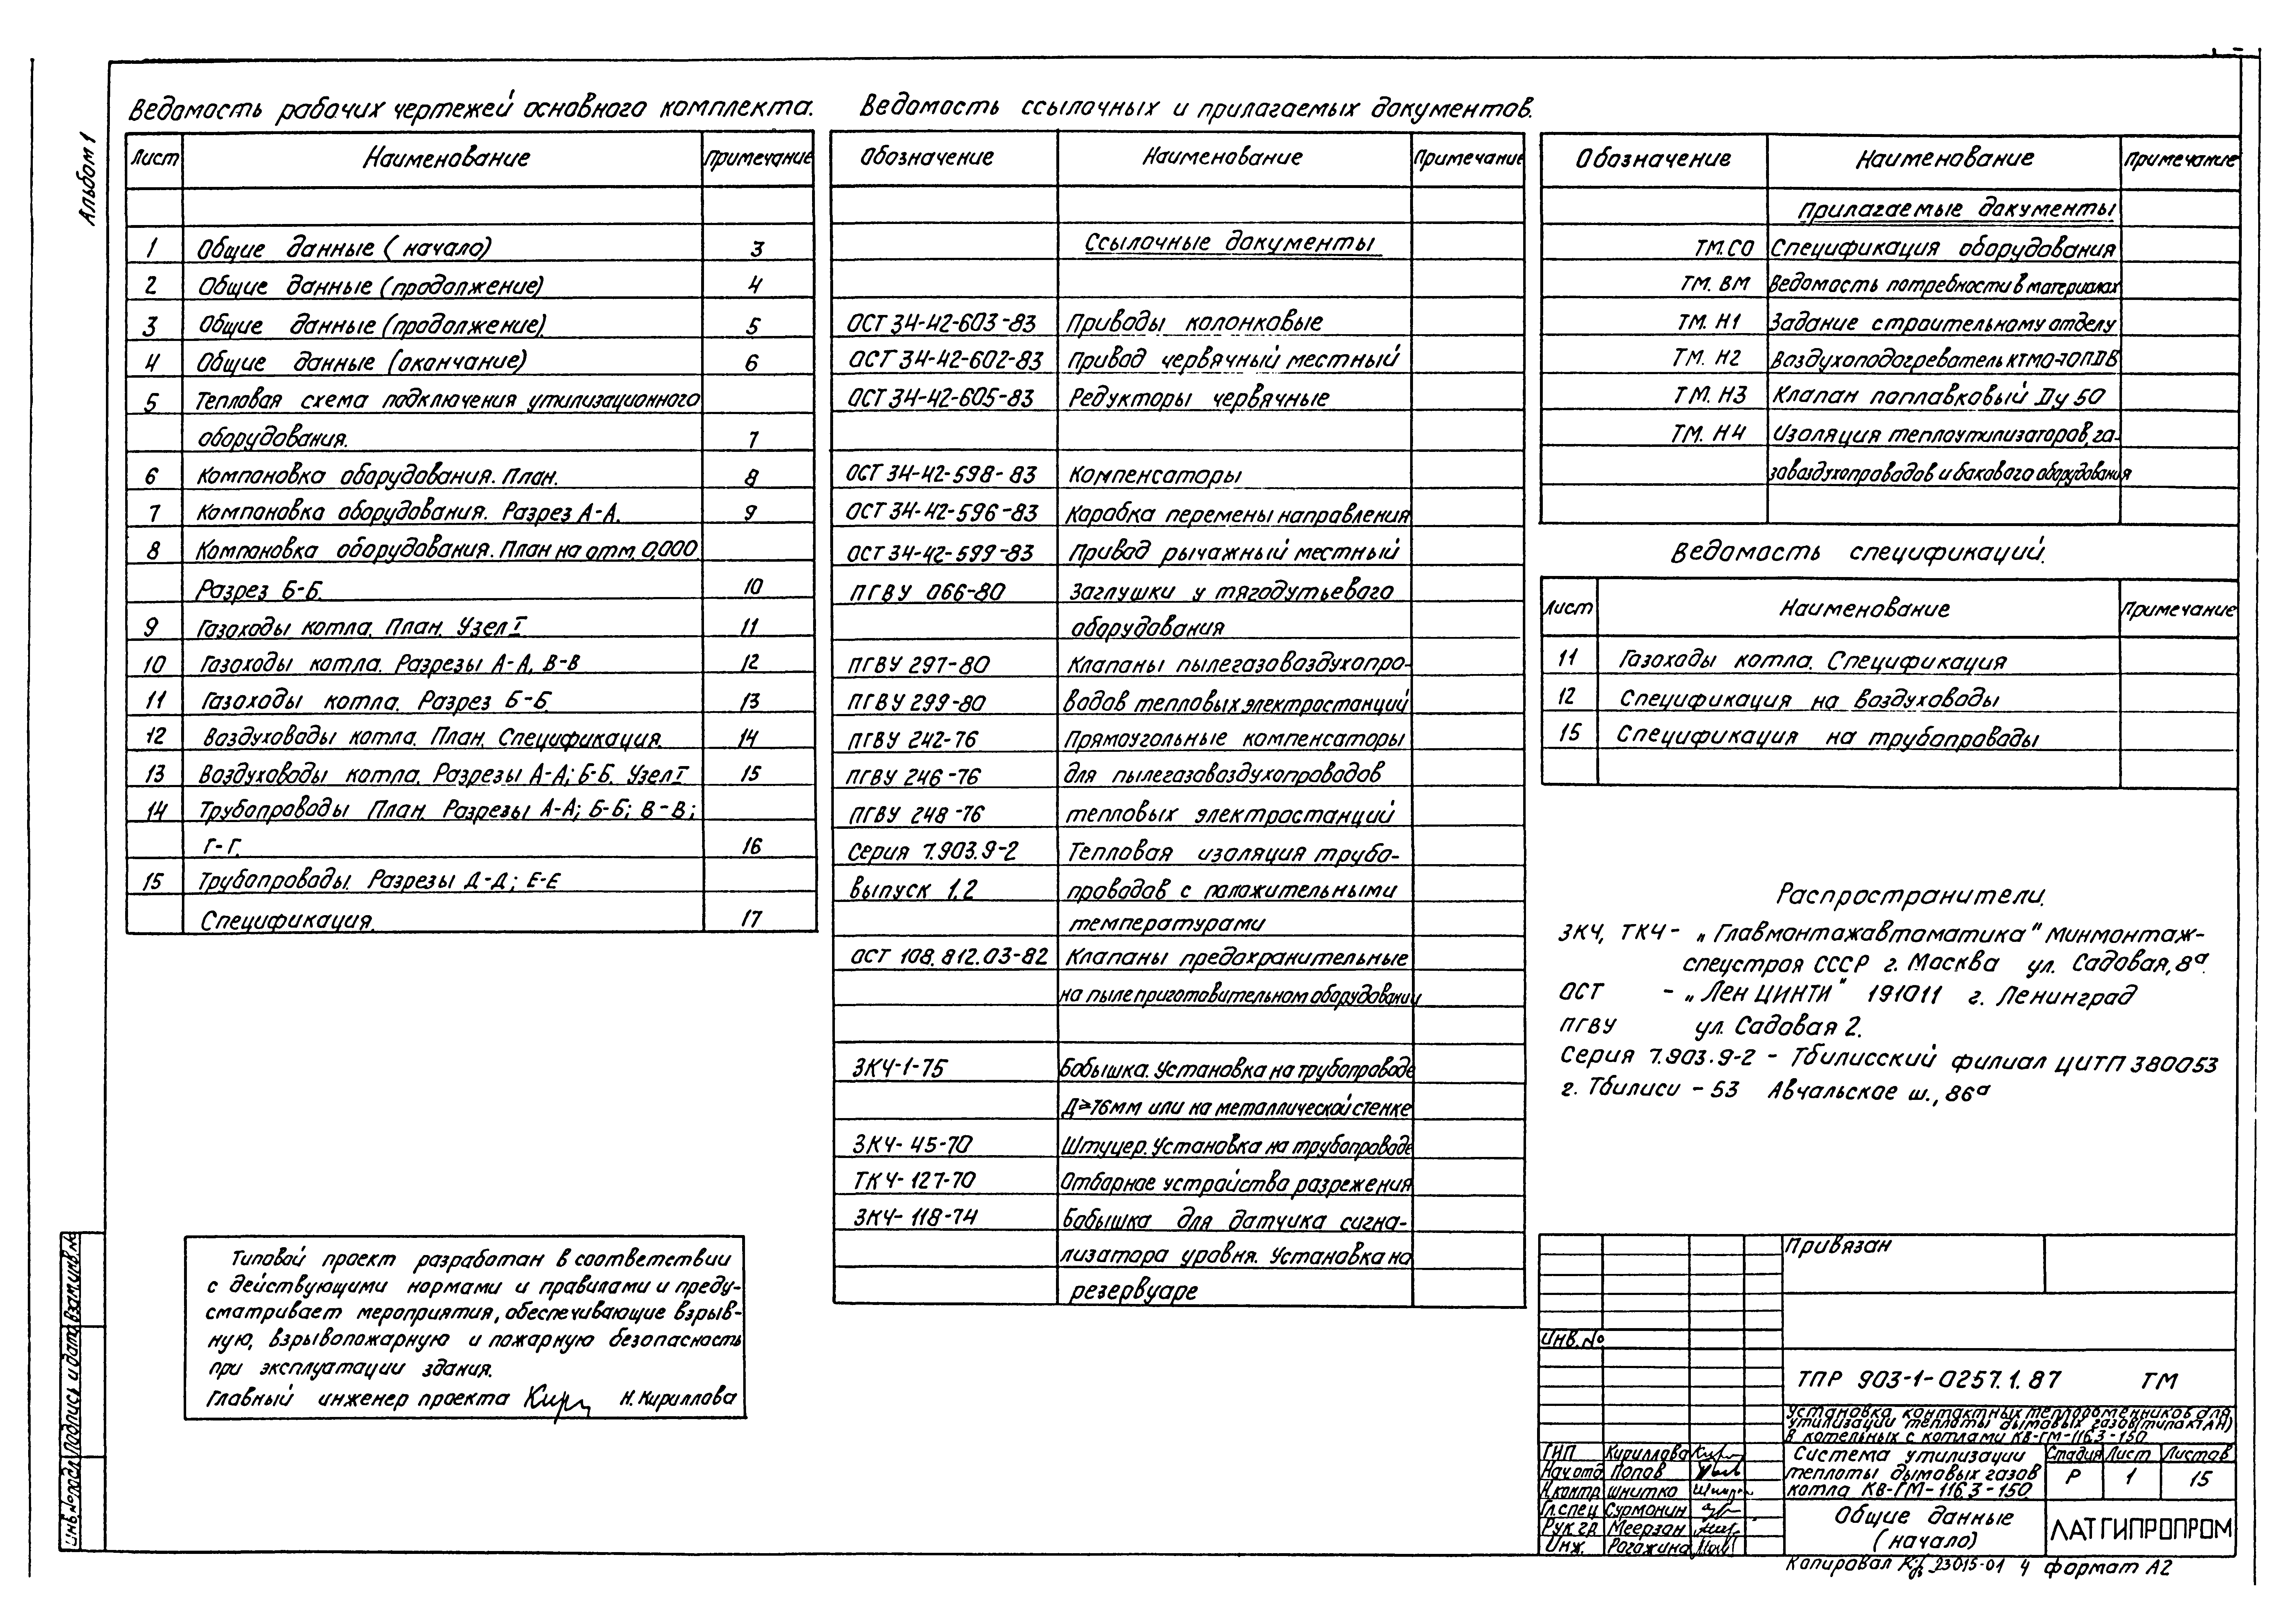 Альбом 1
Ведомость рабочих чертежей основного комплекта.
Лист Наименование Примечание
1 Общие данные (начало) 3
2 Общие данные (продолжение) 4
3 Общие данные (продолжение). 5
4 Общие данные (окончание) 6
5 Тепловая схема подключения утилизационного
оборудования. 7
6 Компоновка оборудования. План. 8
7 Компоновка оборудования. Разрез А-А. 9
8 Компоновка оборудования. План на отм. 0,000.
Разрез Б-Б. 10
9 Газоходы котла. План. Узел I 11
10 Газоходы котла. Разрезы А-А, В-В 12
11 Газоходы котла. Разрез Б-Б. 13
12 Воздуховоды котла. План. Спецификация. 14
13 Воздуховоды котла. Разрезы А-А; Б-Б. Узел I 15
14 Трубопроводы План. Разрезы А-А; Б-Б; В-В;
Г-Г. 16
15 Трубопроводы. Разрезы Д-Д; Е-Е
Спецификация. 17
Типовой проект разработан в соответствии
с действующими нормами и правилами и преду-
сматривает мероприятия, обеспечивающие взрыв-
ную, взрывопожарную и пожарную безопасность
при эксплуатации здания.
Главный инженер проекта Н. Кириллова
Ведомость ссылочных и прилагаемых документов.
Обозначение Наименование Примечание
Ссылочные документы
ОСТ 34-42-603-83 Приводы колонковые
ОСТ 34-42-602-83 Привод червячный местный
ОСТ 34-42-605-83 Редукторы червячные
ОСТ 34-42-598-83 Компенсаторы
ОСТ 34-42-596-83 Коробка перемены направления
ОСТ 34-42-599-83 Привод рычажный местный
ПГВУ 066-80 Заглушки у тягодутьевого
оборудования
ПГВУ 297-80 Клапаны пылегазовоздухопро-
ПГВУ 299-80 водов тепловых электростанций
ПГВУ 242-76 Прямоугольные компенсаторы
ПГВУ 246-76 для пылегазовоздухопроводов
ПГВУ 248-76 тепловых электростанций
Серия 7.903.9-2 Тепловая изоляция трубо-
выпуск 1,2 проводов с положительными
температурами
ОСТ 108.812.03-82 Клапаны предохранительные
на пылеприготовительном оборудовании
ЗКЧ-1-75 Бобышка. Установка на трубопроводе
Д≥76мм или на металлической стенке
ЗКЧ-45-70 Штуцер. Установка на трубопроводе
ТКЧ-127-70 Отборное устройство разрежения
ЗКЧ-118-74 Бобышка для датчика сигна-
лизатора уровня. Установка на
резервуаре
Обозначение Наименование Примечание
Прилагаемые документы
ТМ.СО Спецификация оборудования
ТМ. ВМ Ведомость потребности в материалах
ТМ. Н1 Задание строительному отделу
ТМ. Н2 Воздухоподогреватель КТМ0-70ПДВ
ТМ. Н3 Клапан поплавковый Ду 50
ТМ. Н4 Изоляция теплоутилизаторов, га-
зовоздухопроводов и бакового оборудования
Ведомость спецификаций.
Лист Наименование Примечание
11 Газоходы котла. Спецификация
12 Спецификация на воздуховоды
15 Спецификация на трубопроводы
Распространители.
ЗКЧ, ТКЧ - „Главмонтажавтоматика" Минмонтаж-
спецстроя СССР г. Москва ул. Садовая, 8а.
ОСТ - „ЛенЦИНТИ" 191011 г. Ленинград
ПГВУ ул. Садовая 2.
Серия 7.903.9-2 - Тбилисский филиал ЦИТП 380053
г. Тбилиси - 53 Авчальское ш., 86а
Привязан
Инв.№
ТПР 903-1-0257.1.87 ТМ
Установка контактных теплообменников для
утилизации теплоты дымовых газов (типа КТАН)
в котельных с котлами КВ-ГМ-116,3-150
ГИП Кириллова
Нач.отд Попов
Н.контр. Шнитко
Гл.спец Сурмонин
Рук.гр Меерзан
Инж. Рогожина
Система утилизации
теплоты дымовых газов
котла КВ-ГМ-116,3-150
Стадия Лист Листов
Р 1 15
Общие данные
(начало)
ЛАТГИПРОПРОМ
Копировал 23015-01 4 формат А2
Взам.инв.№
Подпись и дата
Инв.№ подл